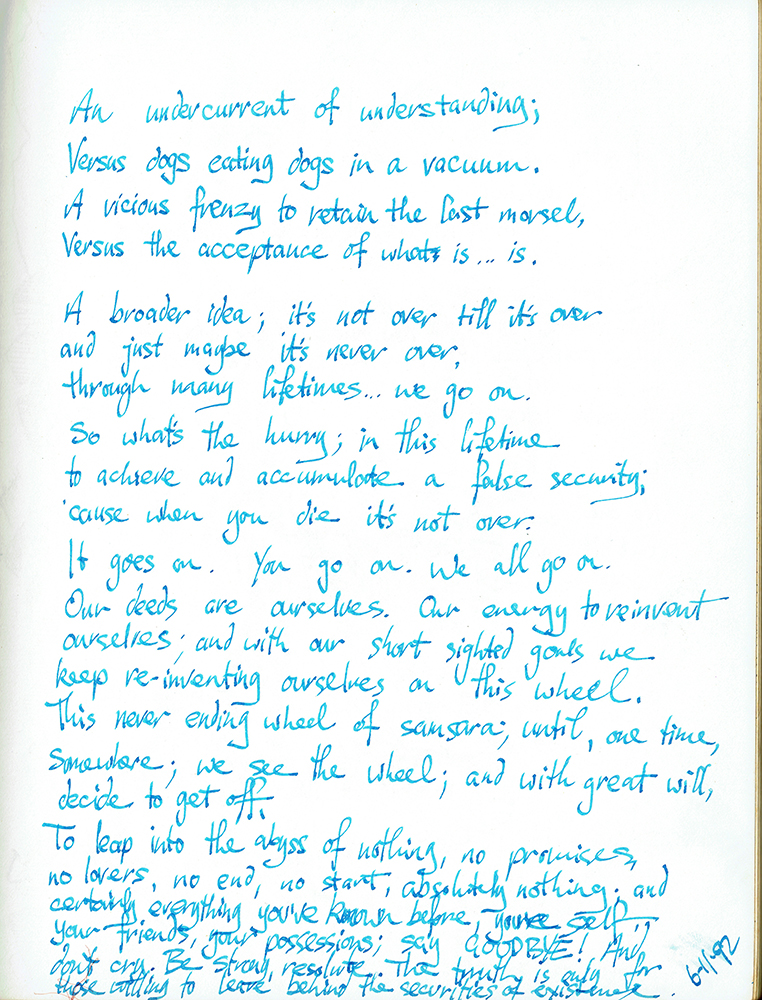 An undercurrent of understanding;
Versus dogs eating dogs in a vacuum.
A vicious frenzy to retain the last morsel,
Versus the acceptance of what is... is.
A broader idea; it's not over till it's over
and just maybe it's never over,
through many lifetimes... we go on.
So what's the hurry; in this lifetime
to achieve and accumulate a false security;
'cause when you die it's not over.
It goes on. You go on. We all go on.
Our deeds are ourselves. Our energy to reinvent
ourselves; and with our short sighted goals we
keep re-inventing ourselves on this wheel.
This never ending wheel of samsara; until, one time,
Somewhere; we see the wheel; and with great will,
decide to get off.
To leap into the abyss of nothing, no promises,
no lovers, no end, no start, absolutely nothing. and
certainly everything you've known before, your self,
your friends, your possessions; say GOODBYE! And
don't cry. Be strong, resolute. The truth is only for
those willing to leave behind the securities of existence.